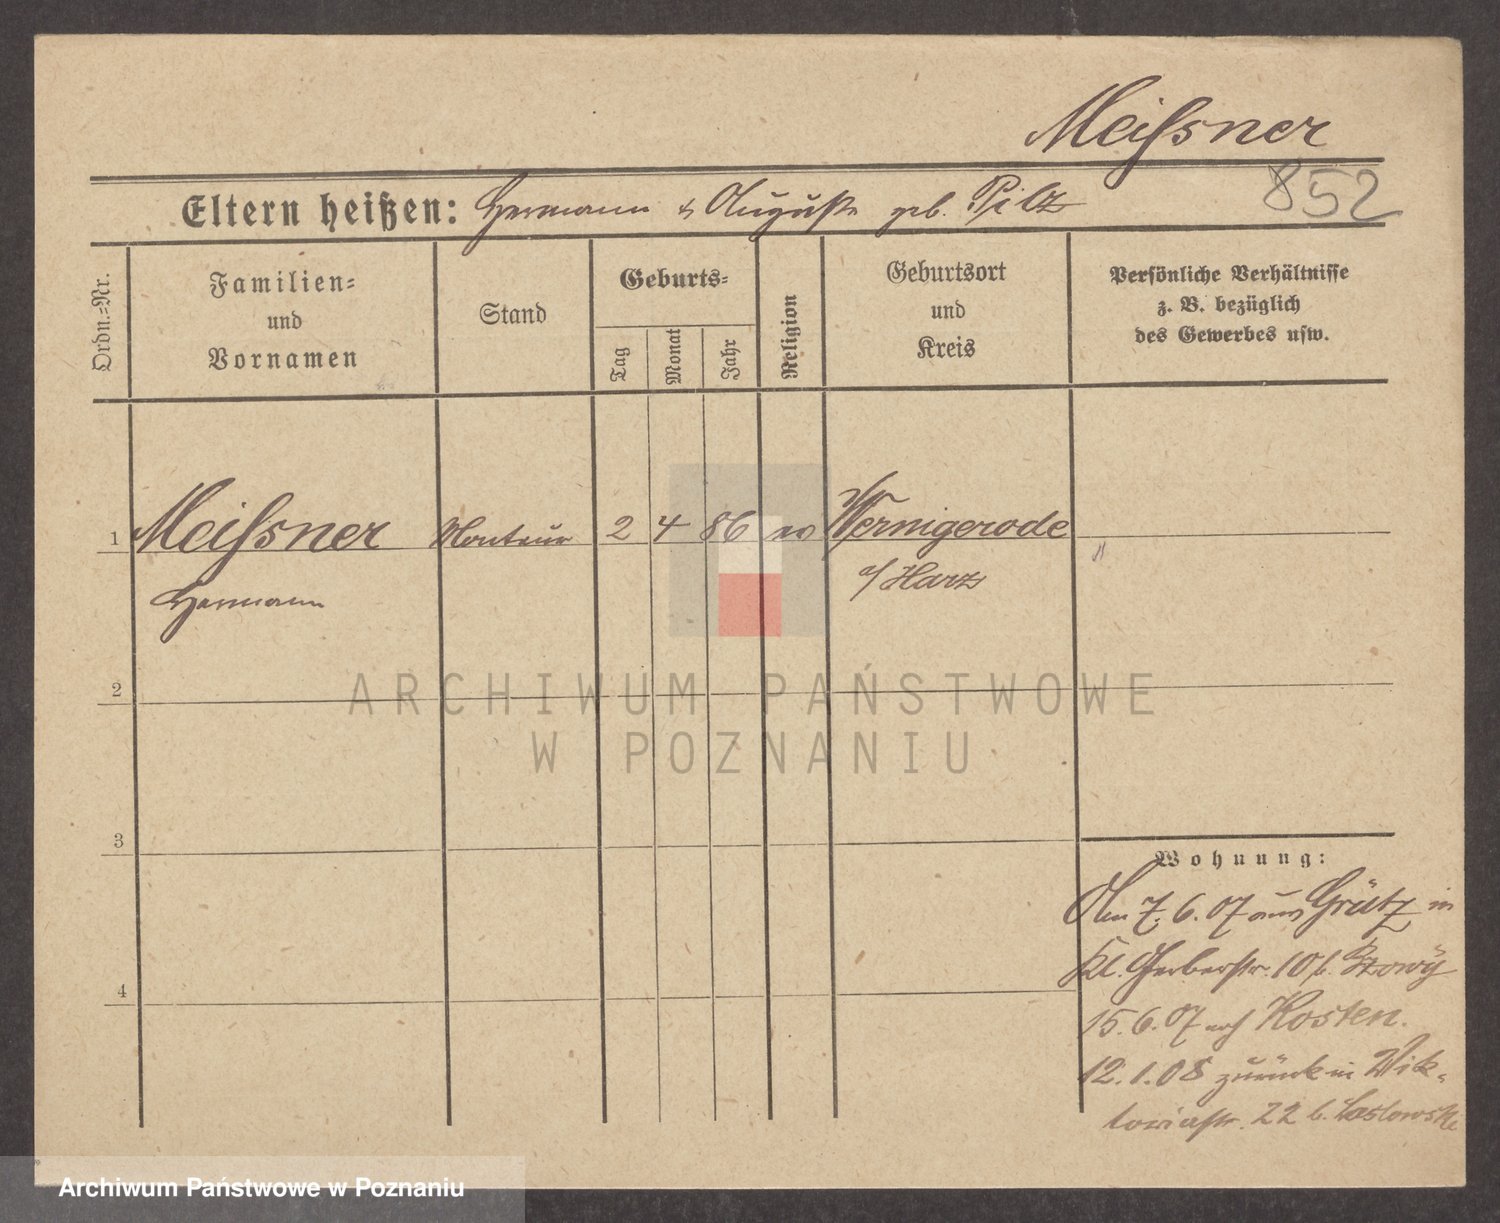 Meiſsner
852
Eltern heißen: Hermann & Auguste geb. Pilz
Ordn.-Nr.
Familien-
und
Vornamen
Stand
Geburts-
Tag
Monat
Jahr
Religion
Geburtsort
und
Kreis
Persönliche Verhältnisse
z. B. bezüglich
des Gewerbes usw.
1 Meiſsner Monteur 2 4 86 ev Wernigerode
Hermann a/Harz
2
3
4
ARCHIWUM PAŃSTWOWE
W POZNANIU
Wohnung:
Am 7.6.07 aus Grätz in
Kl. Gerberstr. 10 b.
15.6.07 nach Kosten.
12.1.08 zurück in Wik-
toriastr. 22 b.
Archiwum Państwowe w Poznaniu